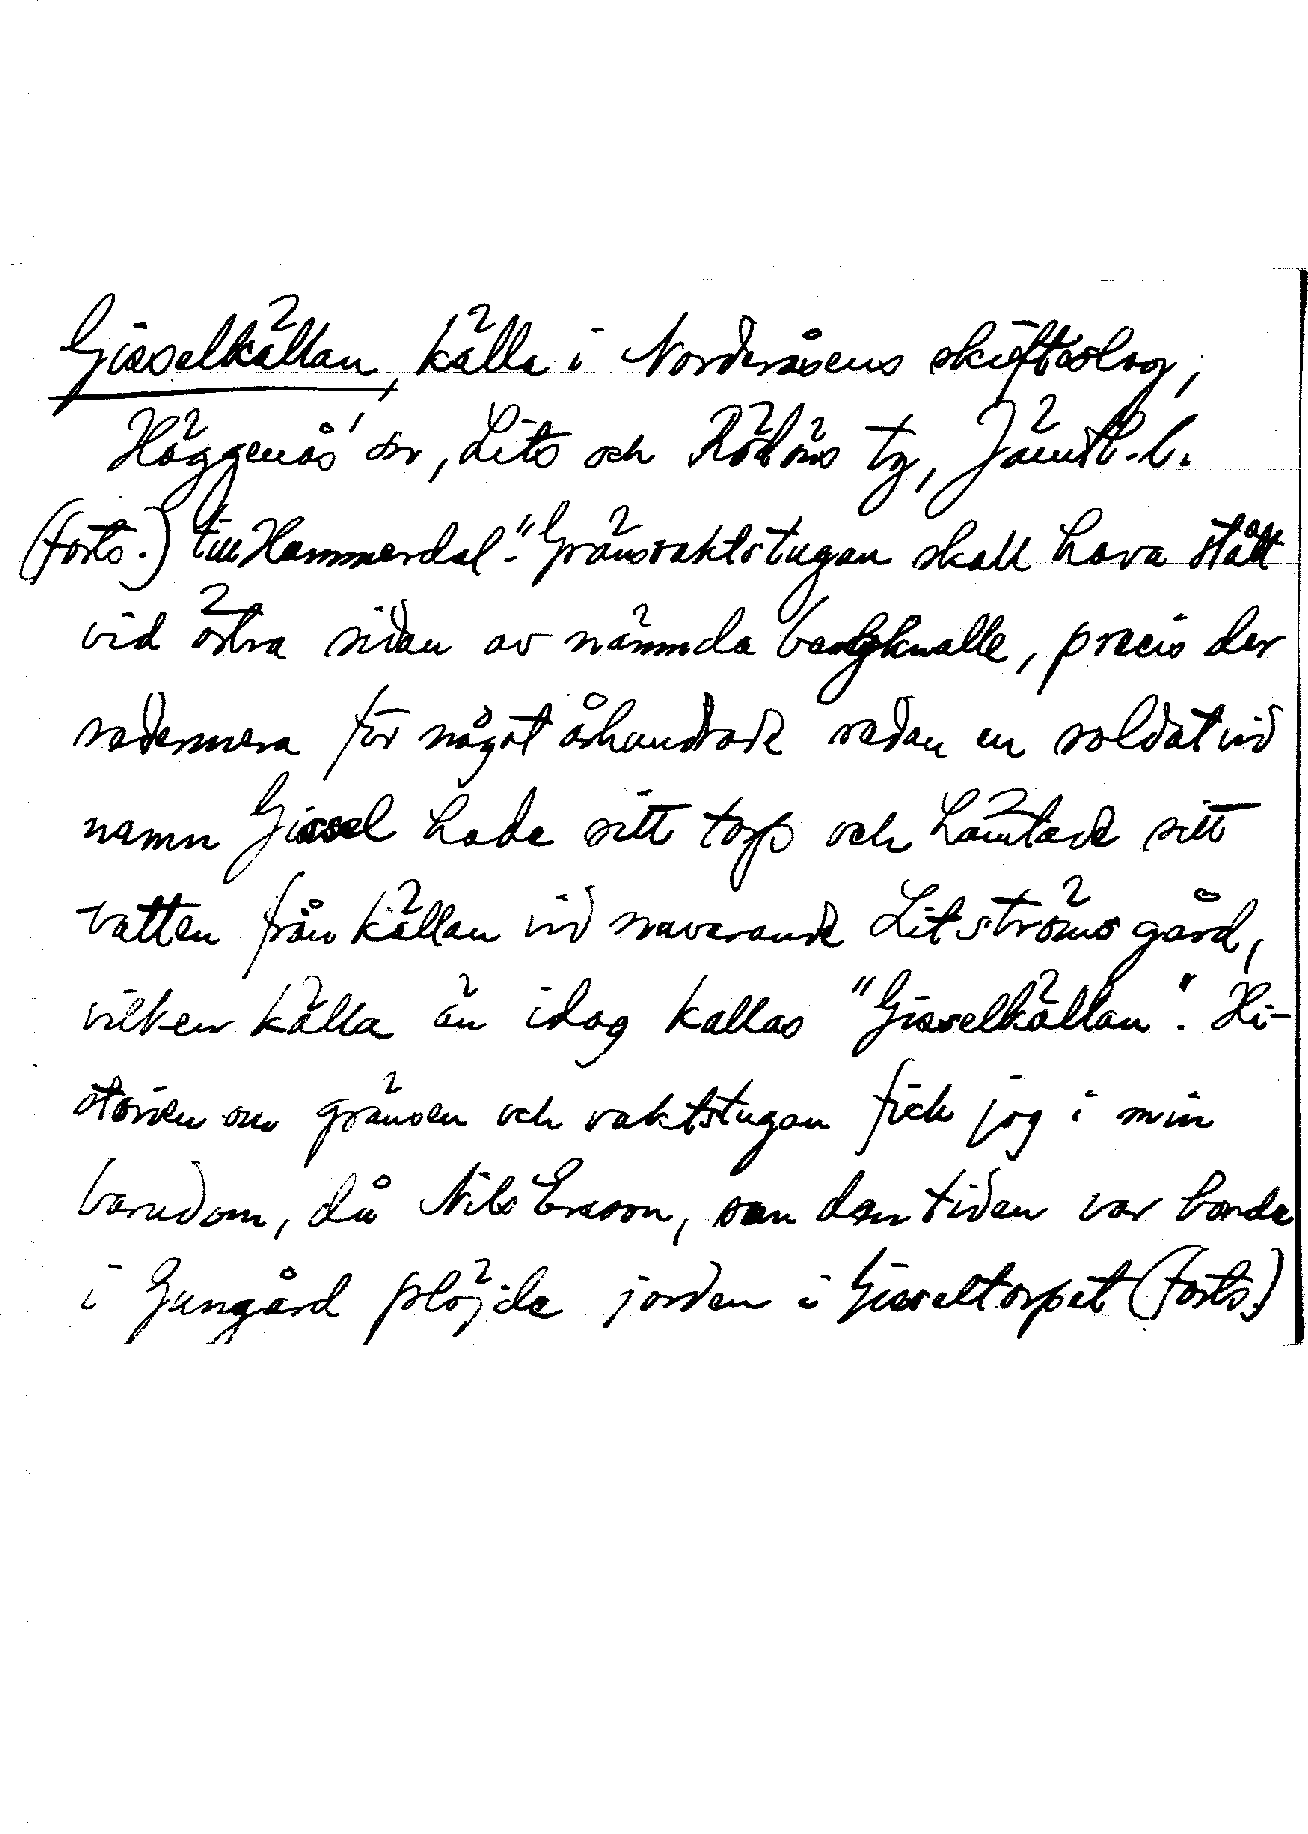 Gisselkällan, källa i Norderåsens skifteslag,
Häggenås' sn, Lits och Rödöns tg, Jämtl. l.
(forts.) till Hammerdal." Gränsvaktstugan skall hava stått
vid östra sidan av nämnda bergknalle, precis der
sedermera för något århundrade sedan en soldat vid
namn Gissel hade sitt torp och hämtade sitt
vatten från källan vid nuvarande Litströms gård,
vilken källa än idag kallas "Gisselkällan". Hi-
storien om gränsen och vaktstugan fick jag i min
barndom, då Nils Ersson, som den tiden var bonde
i Gungård plöjde jorden i Gisseltorpet (forts.)